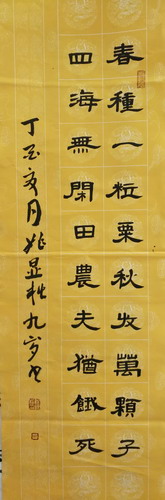 春種一粒粟秋收萬顆子
四海無閑田農夫猶餓死
丁酉年月姚显耕九岁書